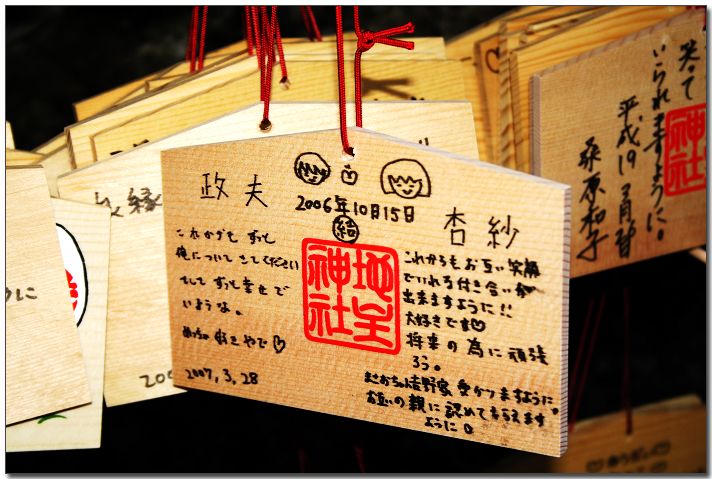 政夫
2006年10月15日
結
杏紗
これからも ずっと
俺についてきてください
そして ずっと幸せで
いような。
めっちゃ 好きやで♡
2007.3.28
地主
神社
これからもお互い笑顔
でいれる付き合いが
出来ますように!!
大好きです♡
将来の為に頑張
ろう。
お互いの親に認めてもらえます
ように。
笑って
いられますように。
平成19
桑原和子
神社
縁
うに